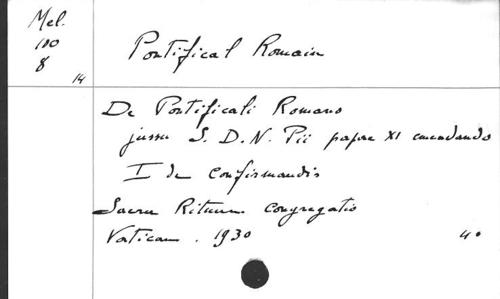 Mel.
100
8
14
Pontifical Romain
De Pontificali Romano
jussu S. D. N. Pii papae XI emendando
I De confirmandis
Sacra Rituum Congregatio
Vatican. 1930
4°